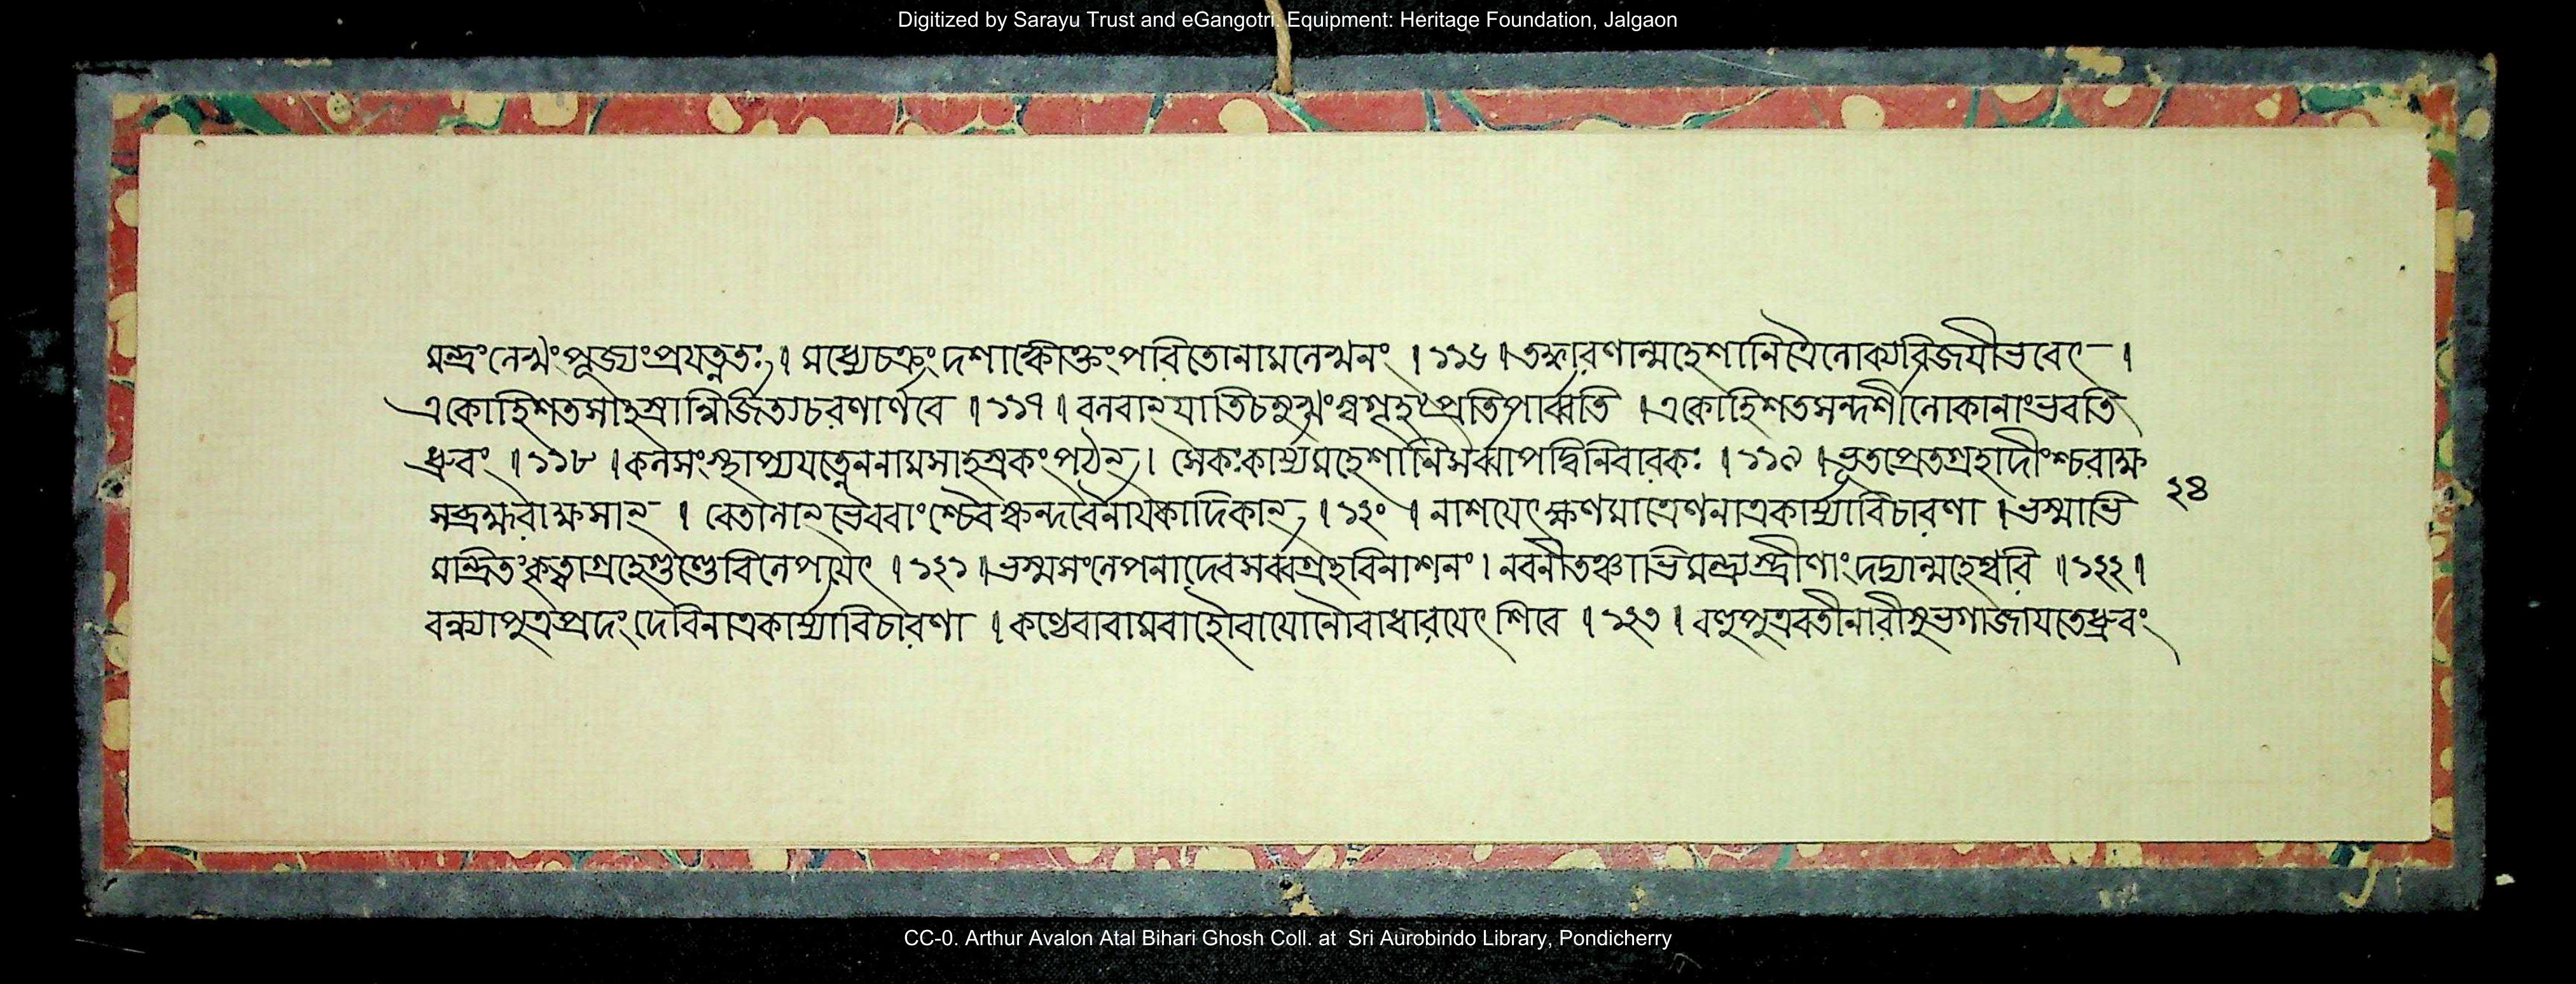 Digitized by Sarayu Trust and eGangotri. Equipment: Heritage Foundation, Jalgaon
মন্ত্রং লেখ্যং পূজ্যং প্রযত্নতঃ । মধ্যে চক্রং দশাঙ্কোক্তং পরিতো নামলেখনং । ১১৬ । তদ্ধারণান্মহেশানি ত্রৈলোক্যবিজযী ভবেৎ ।
একো হি শতসাহস্রান্নির্জিত্য চ রণার্ণবে । ১১৭ । বলবান্ যাতি চ সুখং স্বগৃহং প্রতি পার্ব্বতি । একো হি শতসন্দর্শী লোকানাং ভবতি
ধ্রুবং । ১১৮ । কলসং স্থাপ্য যত্নেন নামসাহস্রকং পঠেন্ । সেকঃ কার্য্য মহেশানি সর্ব্বাপদ্বিনিবারকঃ । ১১৯ । ভূতপ্রেতগ্রহাদীংশ্চ রাক্ষ
সন্ব্রহ্মরাক্ষসান্ । বেতালান্ ভৈরবাংশ্চৈব স্কন্দবৈনাযকাদিকান্ । ১২০ । নাশযেৎ ক্ষণমাত্রেণ নাত্র কার্য্যা বিচারণা । ভস্মাভি
২৪
মন্ত্রিতং কৃত্বা গ্রহেগ্রস্তে বিলেপযেৎ । ১২১ । ভস্মসংলেপনাদেব সর্ব্বগ্রহবিনাশনং । নবনীতঞ্চাভিমন্ত্র্য স্ত্রীণাং দদ্যান্মহেশ্বরি । ১২২ ।
বন্ধ্যাপুত্রপ্রদং দেবি নাত্র কার্য্যা বিচারণা । কণ্ঠে বা বামবাহৌ বা যোনৌ বা ধারযেৎ শিবে । ১২৩ । বহুপুত্রবতী নারী সুভগা জাযতে ধ্রুবং
CC-0. Arthur Avalon Atal Bihari Ghosh Coll. at Sri Aurobindo Library, Pondicherry